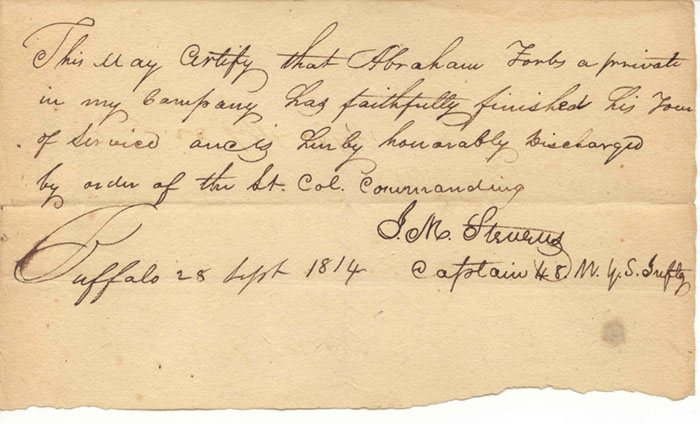 This May Certify that Abraham Forbs a private
in my Company has faithfully finished his Tour
of Service and is herby honorably Discharged
by order of the Lt. Col. Commanding
J. M. Stevens
Buffalo 28 Sept 1814 Captain 48. N. Y. S. Infty